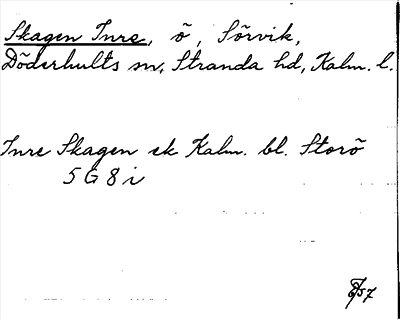 Skagen Inre, ö, Sörvik,
Döderhults sn, Stranda hd, Kalm. l.
Inre Skagen ek Kalm. bl. Storö
5 G 8 i